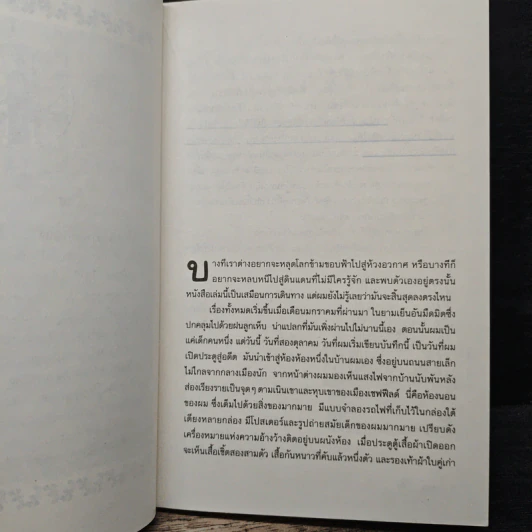 บางทีเราต่างอยากจะหลุดโลกข้ามขอบฟ้าไปสู่ห้วงอวกาศ หรือบางทีก็
อยากจะหลบหนีไปสู่ดินแดนที่ไม่มีใครรู้จัก และพบตัวเองอยู่ตรงนั้น
หนังสือเล่มนี้เป็นเสมือนการเดินทาง แต่ผมยังไม่รู้เลยว่ามันจะสิ้นสุดลงตรงไหน
เรื่องทั้งหมดเริ่มขึ้นเมื่อเดือนมกราคมที่ผ่านมา ในยามเย็นอันมืดมิดซึ่ง
ปกคลุมไปด้วยฝนลูกเห็บ น่าแปลกที่มันเพิ่งผ่านไปไม่นานนี้เอง ตอนนั้นผมเป็น
แค่เด็กคนหนึ่ง แต่วันนี้ วันที่สองตุลาคม วันที่ผมเริ่มเขียนบันทึกนี้ เป็นวันที่ผม
เปิดประตูสู่อดีต มันนำเข้าสู่ห้องห้องหนึ่งในบ้านผมเอง ซึ่งอยู่บนถนนสายเล็ก
ไม่ไกลจากกลางเมืองนัก จากหน้าต่างผมมองเห็นแสงไฟจากบ้านนับพันหลัง
ส่องเรียงรายเป็นจุดๆ ตามเนินเขาและหุบเขาของเมืองเชฟฟีลด์ นี่คือห้องนอน
ของผม ซึ่งเต็มไปด้วยสิ่งของมากมาย มีแบบจำลองรถไฟที่เก็บไว้ในกล่องใต้
เตียงหลายกล่อง มีโปสเตอร์และรูปถ่ายสมัยเด็กของผมมากมาย เปรียบดัง
เครื่องหมายแห่งความอ้างว้างติดอยู่บนผนังห้อง เมื่อประตูตู้เสื้อผ้าเปิดออก
จะเห็นเสื้อเชิ้ตสองสามตัว เสื้อกันหนาวที่คับแล้วหนึ่งตัว และรองเท้าผ้าใบคู่เก่า